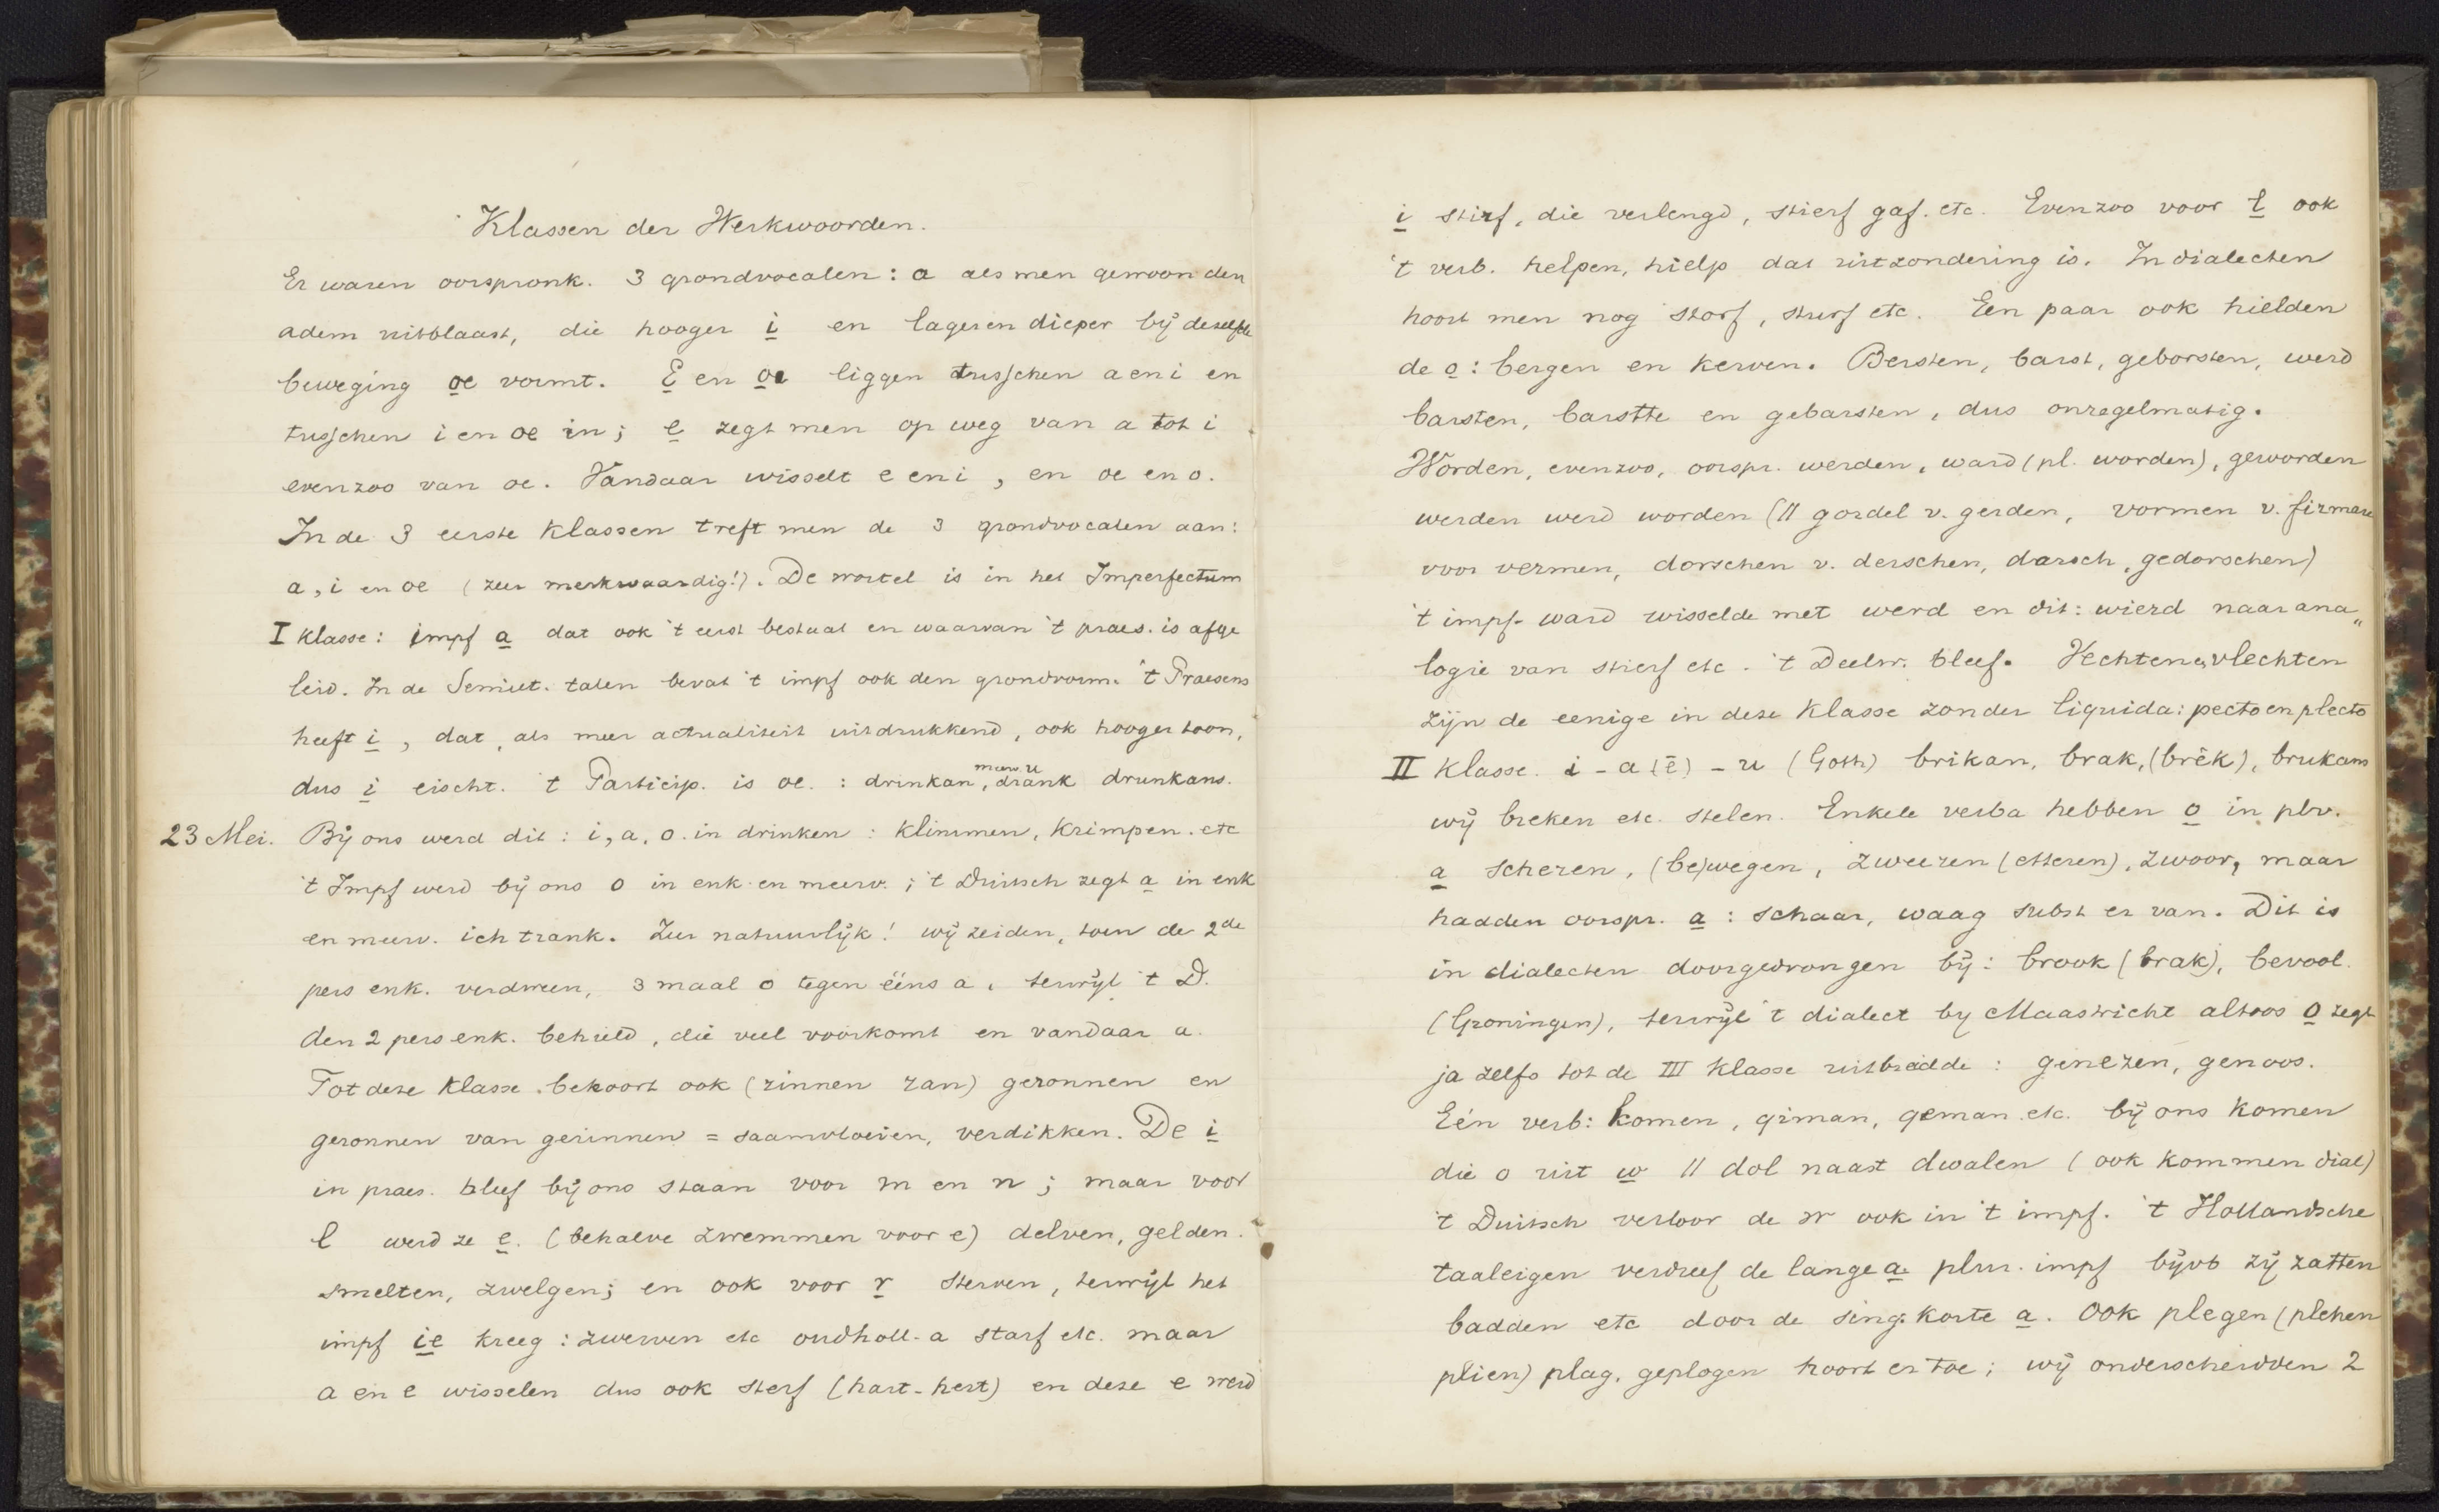 Klassen der Werkwoorden.
Er waren oorspronk. 3 grondvocalen: a als men gewoon den
adem uitblaast, die hooger i en lager en dieper bij dezelfde
beweging oe vormt. E en oe liggen tusschen a en i en
tusschen i en oe in; e zegt men op weg van a tot i
evenzoo van oe. Vandaar wisselt e en i, en oe en o.
In de 3 eerste klassen treft men de 3 grondvocalen aan:
a, i en oe (zeer merkwaardig!). De wortel is in het Imperfectum
I klasse: impf a dat ook 't eerst bestaat en waarvan 't praes. is afge
leid. In de Semiet. talen bevat 't impf ook den grondvorm. 't Praesens
heeft i, dat, als meer actualiteit uitdrukkend, ook hooger toon,
dus i eischt. 't Particip. is oe. : drinkan, drank drunkans.
meerv. u
23 Mei. Bij ons werd dit: i, a, o. in drinken: klimmen, krimpen. etc
't Impf werd bij ons o in enk. en meerv.; 't Duitsch zegt a in enk
en meerv. ich trank. Zeer natuurlijk! wij zeiden, toen de 2de
pers enk. verdween, 3 maal o tegen ééns a, terwijl 't D.
den 2 pers enk. behield, die veel voorkomt en vandaar a.
Tot deze klasse behoort ook (zinnen zan) geronnen en
geronnen van gerinnen = saamvloeien, verdikken. De i
in praes. bleef bij ons staan voor m en n; maar voor
l werd ze e. (behalve zwemmen voor e) delven, gelden.
smelten, zwelgen; en ook voor r sterven, terwijl het
impf ie kreeg: zwerven etc oudholl. a starf etc. maar
a en e wisselen dus ook sterf (hart-hert) en deze e werd
i stirf, die verlengd, stierf gaf. etc. Evenzoo voor l ook
't verb. helpen, hielp dat uitzondering is. In dialecten
hoort men nog storf, sturf etc. Een paar ook hielden
de o: bergen en kerven. Bersten, barst, geborsten, werd
barsten, barstte en gebarsten, dus onregelmatig.
Worden, evenzoo, oorspr. werden, ward (pl. worden), geworden
werden werd worden (11 gordel v. gerden, vormen v. firmare
voor vermen, dorschen v. derschen, darsch, gedorschen)
't impf. ward wisselde met werd en dit: wierd naar ana„
logie van stierf etc. 't Deelw. bleef. Vechten en vlechten
zijn de eenige in deze klasse zonder liquida: pecto en plecto
II klasse. i - a (ē) - u (Goth) brikan, brak, (brêk), brukans
wij breken etc. stelen. Enkele verba hebben o in plv.
a scheren, (be)wegen, zweren (etteren), zwoor, maar
hadden oorspr. a: schaar, waag subst er van. Dit is
in dialecten doorgedrongen bij: brook (brak), bevool.
(Groningen), terwijl 't dialect by Maastricht altoos o zegt
ja zelfs tot de III klasse uitbreidde: genezen, genoos.
Eén verb: komen, qiman, qeman etc. bij ons komen
die o uit w 11 dol naast dwalen (ook kommen dial)
't Duitsch verloor de w ook in 't impf. 't Hollandsche
taaleigen verdreef de lange a. plur. impf bijvb zij zatten
badden etc door de sing. korte a. Ook plegen (plehen
plien) plag, geplogen hoort er toe; wij onderscheidden 2